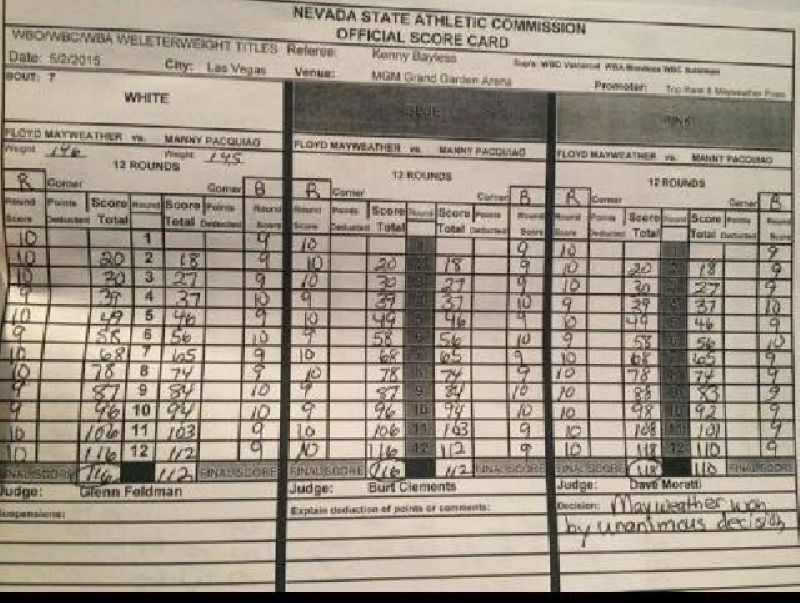 NEVADA STATE ATHLETIC COMMISSION
OFFICIAL SCORE CARD
WBO/WBC/WBA WELETERWEIGHT TITLES Referee: Kenny Bayless
Date: 5/2/2015 City: Las Vegas Venue: MGM Grand Garden Arena Promoter:
BOUT: 7
WHITE BLUE PINK
FLOYD MAYWEATHER vs. MANNY PACQUIAO FLOYD MAYWEATHER vs. MANNY PACQUIAO FLOYD MAYWEATHER vs. MANNY PACQUIAO
Weight 146 Weight 145
12 ROUNDS 12 ROUNDS 12 ROUNDS
R Corner Corner B R Corner Corner B R Corner Corner B
Round Points Score Round Score Points Round Round Points Score Round Score Points Round Round Points Score Round Score Points Round
Score Deducted Total Total Deducted Score Score Deducted Total Total Deducted Score Score Deducted Total Total Deducted Score
10 1 9 10 9 10 9
10 20 2 18 9 10 20 18 9 10 20 18 9
10 30 3 27 9 10 30 27 9 10 30 27 9
9 39 4 37 10 9 39 37 10 9 39 37 10
10 49 5 46 9 10 49 46 9 10 49 46 9
9 58 6 56 10 9 58 56 10 9 58 56 10
10 68 7 65 9 10 68 65 9 10 68 65 9
10 78 8 74 9 10 78 74 9 10 78 74 9
9 87 9 84 10 9 87 84 10 10 88 83 9
9 96 10 94 10 9 96 10 94 10 10 98 10 92 9
10 106 11 103 9 10 106 11 103 9 10 108 101 9
10 116 12 112 9 10 116 12 112 9 10 118 12 110 9
FINAL SCORE 116 112 FINAL SCORE FINAL SCORE 116 112 FINAL SCORE FINAL SCORE 118 110 FINAL SCORE
Judge: Glenn Feldman Judge: Burt Clements Judge: Dave Moretti
Suspensions: Explain deduction of points or comments: Decision: Mayweather won
by unanimous decision